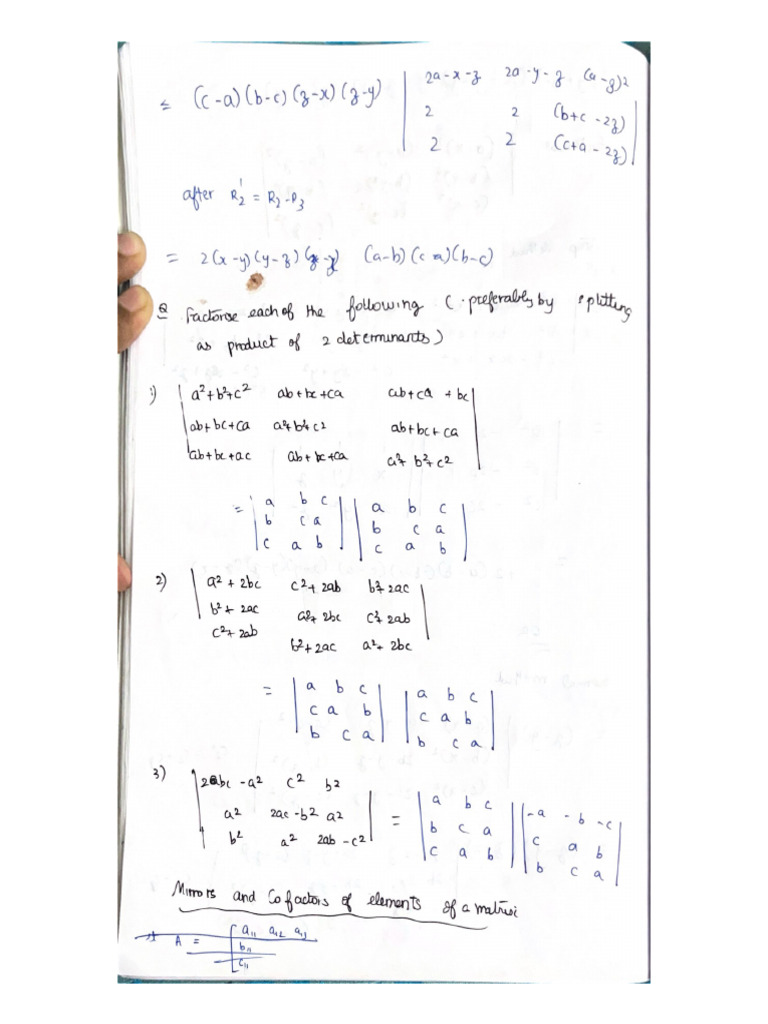 = (c-a)(b-c)(z-x)(z-y) | 2a-x-z 2a-y-z (a-z)² |
| 2 2 (b+c-2z) |
| 2 2 (c+a-2z) |
after R₂' = R₂-R₃
= 2(x-y)(y-z)(z-x) (a-b)(c-a)(b-c)
Q Factorise each of the following (preferably by splitting
as product of 2 determinants)
1) | a²+b²+c² ab+bc+ca ab+ca+bc |
| ab+bc+ca a²+b²+c² ab+bc+ca |
| ab+bc+ac ab+bc+ca a²+b²+c² |
= | a b c | | a b c |
| b c a | | b c a |
| c a b | | c a b |
2) | a²+2bc c²+2ab b²+2ac |
| b²+2ac a²+2bc c²+2ab |
| c²+2ab b²+2ac a²+2bc |
= | a b c | | a b c |
| c a b | | c a b |
| b c a | | b c a |
3) | 2abc-a² c² b² |
| a² 2ac-b² a² |
| b² a² 2ab-c² |
= | a b c | | -a -b -c |
| b c a | | c a b |
| c a b | | b c a |
Mirrors and Cofactors of elements of a matrix
A = [ a₁₁ a₁₂ a₁₃
b₁₁
c₁₁